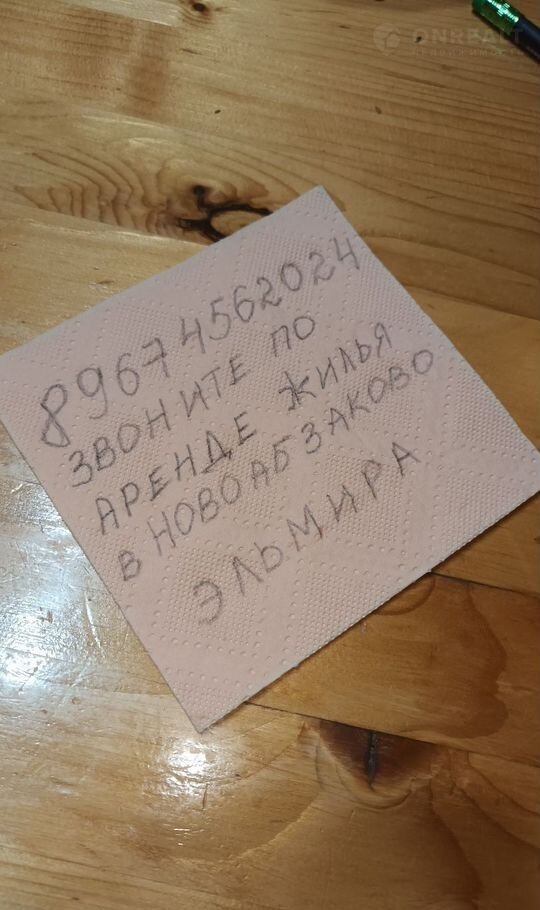 ONREALT
89674562024
ЗВОНИТЕ ПО
АРЕНДЕ ЖИЛЬЯ
В НОВОАБЗАКОВО
ЭЛЬМИРА